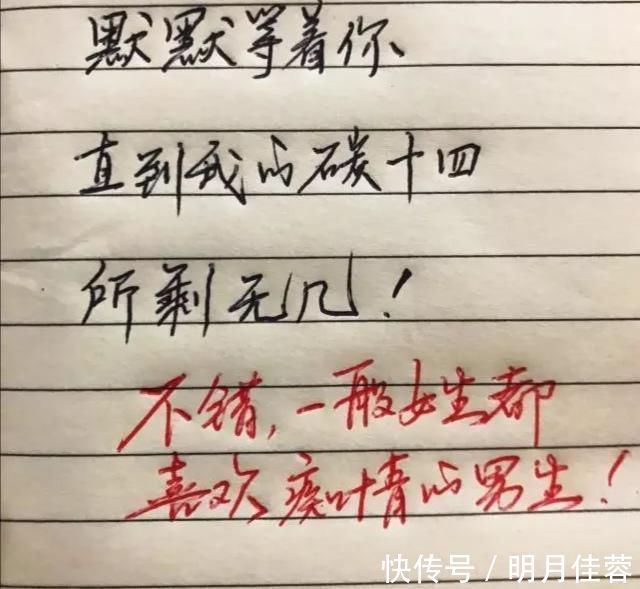 默默等着你
直到我的碳十四
所剩无几！
不错，一般女生都
喜欢痴情的男生！
快传号 / 明月佳蓉